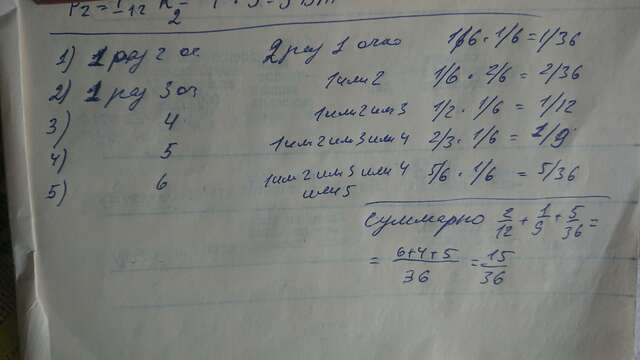 1) 1 раз 2 оч 2 раз 1 очко 1/6 · 1/6 = 1/36
2) 1 раз 3 оч 1 или 2 1/6 · 2/6 = 2/36
3) 4 1 или 2 или 3 1/2 · 1/6 = 1/12
4) 5 1 или 2 или 3 или 4 2/3 · 1/6 = 1/9
5) 6 1 или 2 или 3 или 4 или 5 5/6 · 1/6 = 5/36
Суммарно 2/12 + 1/9 + 5/36 =
= 6+4+5/36 = 15/36